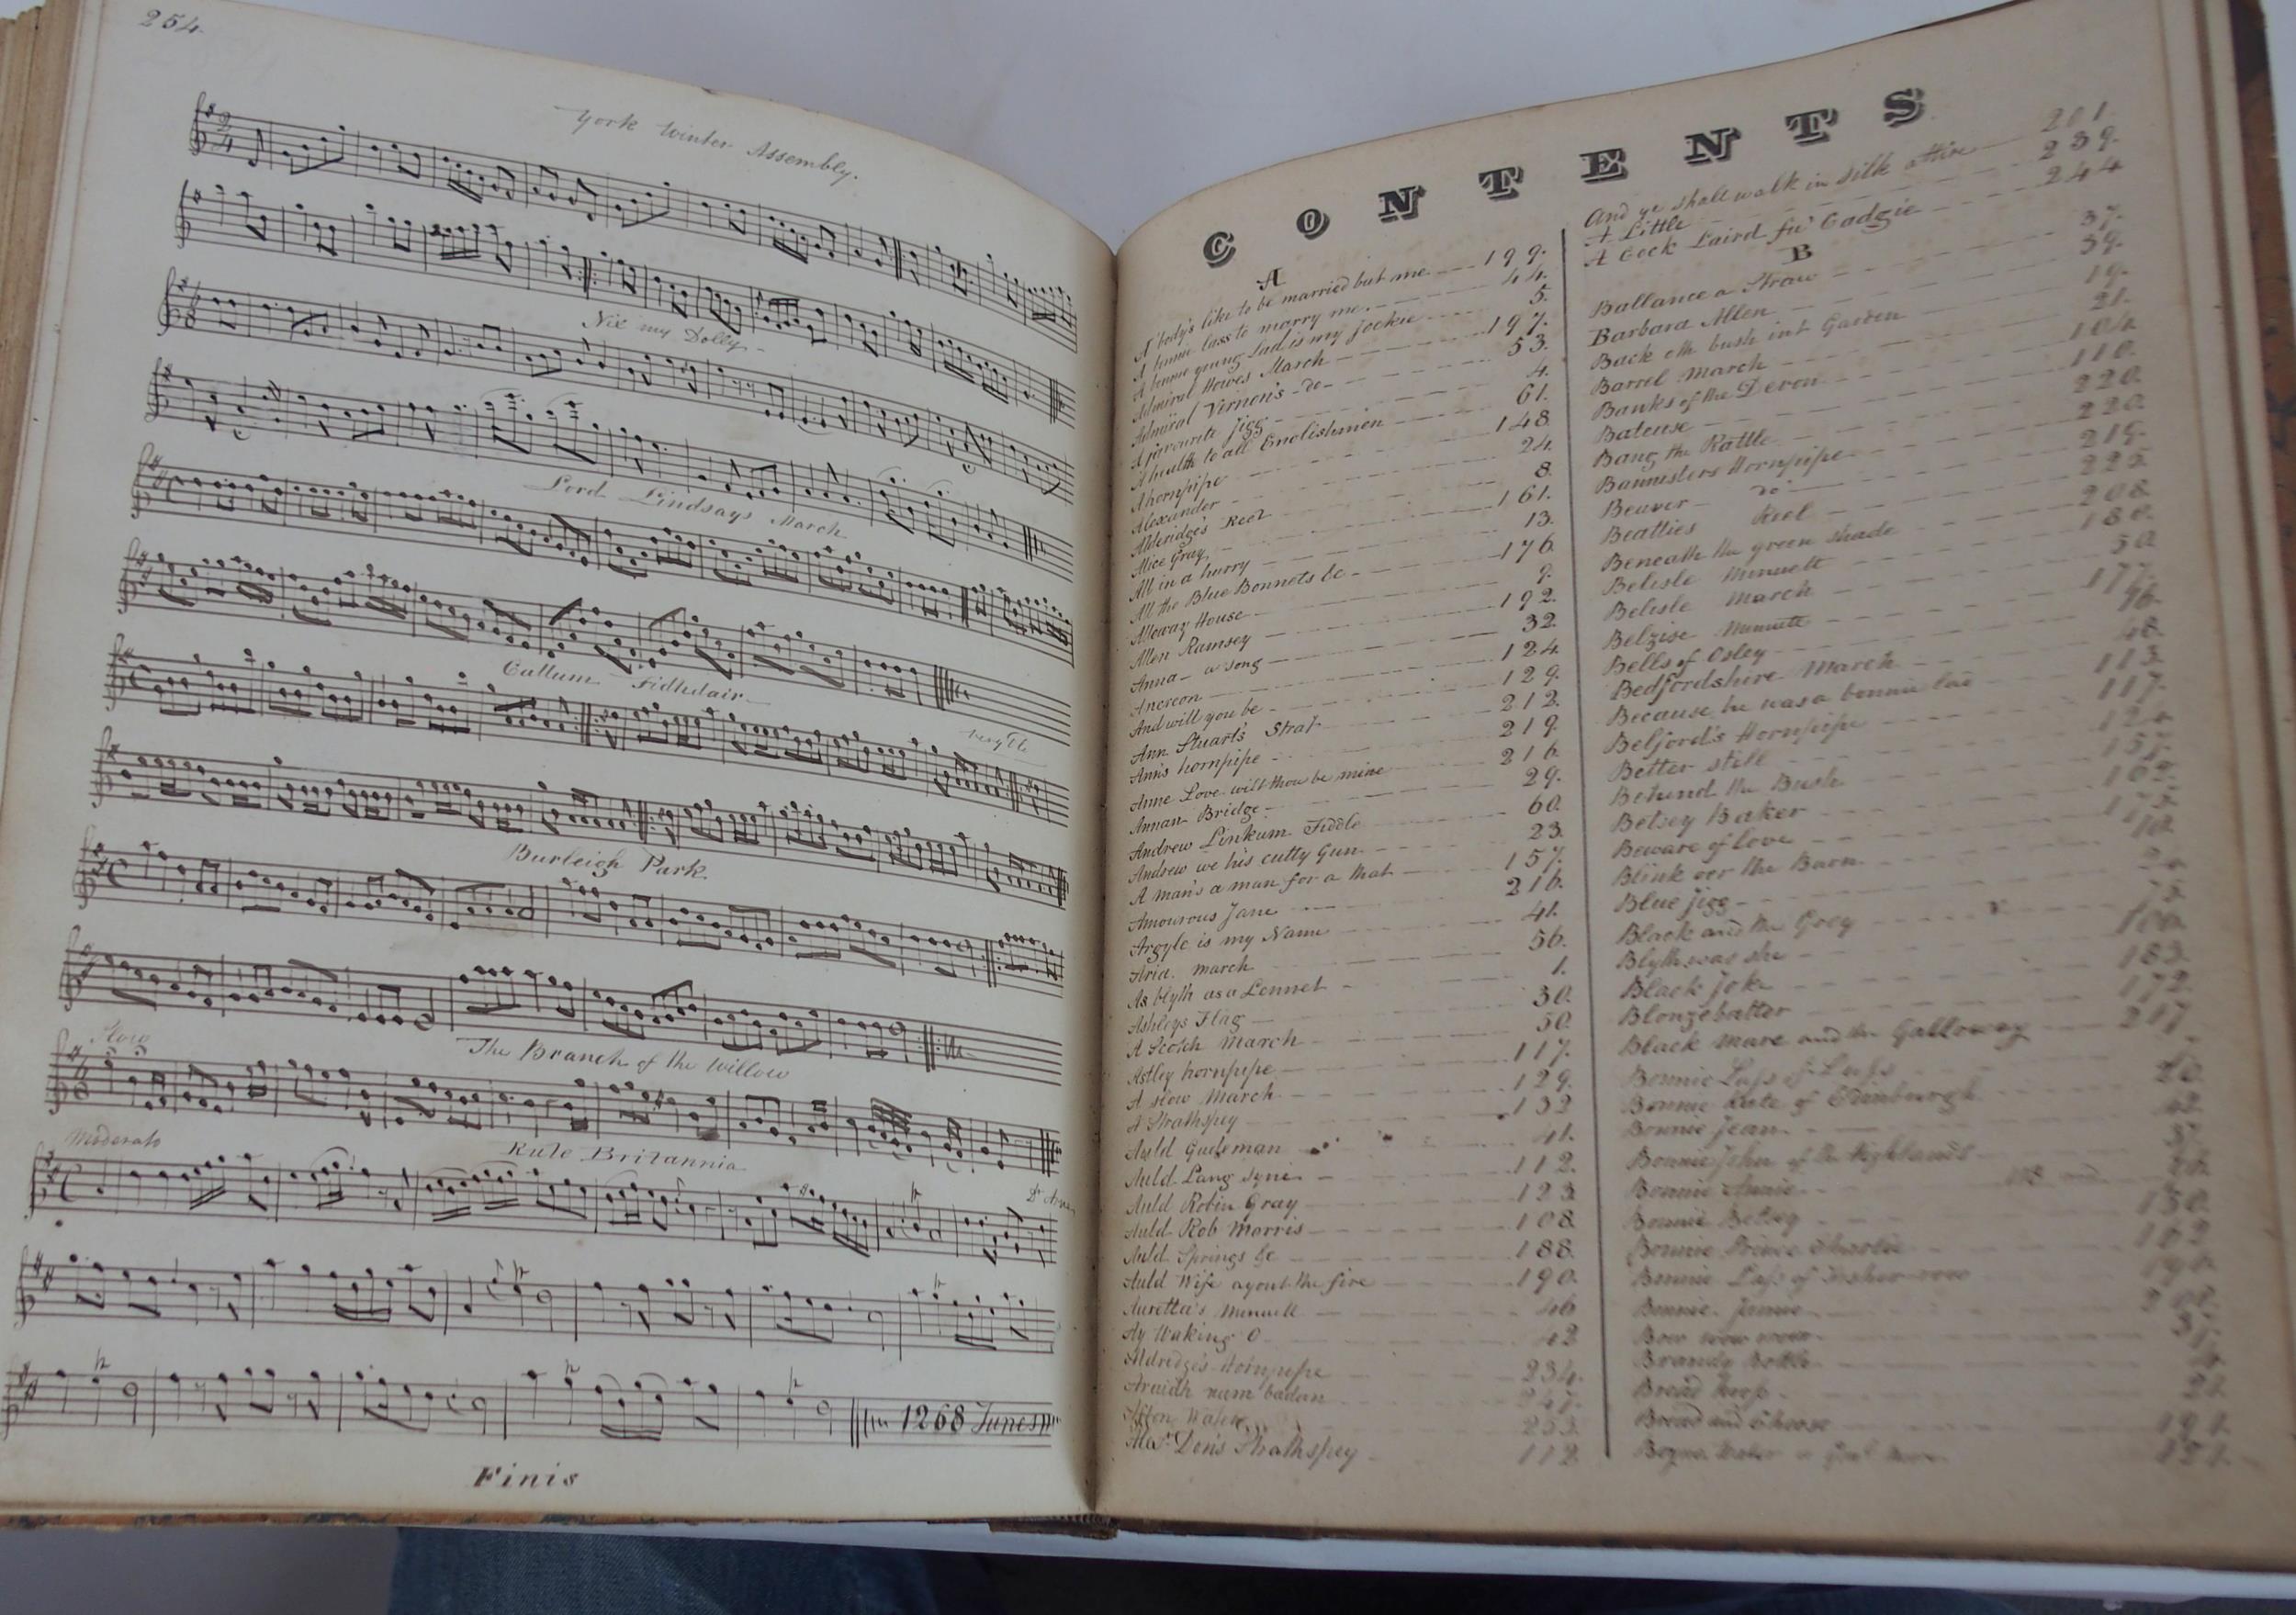 254.
York Winter Assembly.
Nix my Dolly
Lord Lindsays March
Callum Fidhdair
Burleigh Park
Slow
The Branch of the Willow
Moderato
Rule Britannia
Dr Arne
1268 Tunes
Finis
CONTENTS
A
A'body's like to be married but me 199.
A bonnie lass to marry me 44.
A bonnie young Lad is my Jockie 5.
Admiral Howes March 197.
Admiral Vernon's do 53.
A favourite Jigg 4.
A health to all Englishmen 61.
A hornpipe 148
Alexander 24.
Alderidge's Reel 8.
Alice Gray 161.
All in a hurry 13.
All the Blue Bonnets &c 176.
Alloway House 9.
Allen Ramsey 192.
Anna a song 32.
Ancreon 124.
And will you be 129.
Ann Stuart's Strat 212.
Ann's hornpipe 219.
Anne Love wilt thou be mine 216.
Annan Bridge 29.
Andrew Linkum Fiddle 60.
Andrew we his cutty Gun 23.
A man's a man for a that 157.
Amourous Jane 216.
Argyle is my Name 41.
Aria march 56.
As blyth as a Lennet 1.
Ashleys Flag 30.
A Scotch March 50.
Astley hornpipe 117.
A slow March 129.
A Strathspey 132
Auld Gudeman 41.
Auld Lang syne 112.
Auld Robin Gray 123
Auld Rob Morris 108.
Auld Springs &c 188.
Auld Wife ayont the fire 190.
Auretta's Minuett 46
Ay Waking O 42
Aldredge's Hornpipe 234.
Araidh nam badan 247.
Afton Water 253.
Alexr Don's Strathspey 112.
And ye shall walk in silk attire 201.
A Little 239.
A Cock Laird fu' Cadgie 244
B
Ballance a Straw 37.
Barbara Allen 39.
Back oth bush int Garden 19.
Barrel March 21.
Banks of the Devon 104.
Bateuse 110.
Bang the Rattle 220.
Bannisters Hornpipe 220.
Beaver do 219.
Beatties Reel 225.
Beneath the green shade 208.
Belisle Minuett 180.
Belisle March 50
Belzise Minuett 177.
Bells of Osley 96.
Bedfordshire March 48.
Because he was a bonnie lad 113.
Belford's Hornpipe 117.
Better still
Behind the Bush 157.
Betsey Baker
Beware of love
Blink oer the Barn
Blue Jigg
Black and the Grey
Blyth was she
Black Joke 183.
Blonzebatter 172.
Black Mare and the Galloway 217
Bonnie Lass
Bonnie Kate of Edinburgh
Bonnie Jean 42
Bonnie John of the Highlands
Bonnie Annie
Bonnie Betsey 150.
Bonnie Prince Charlie 162
Bonnie Lass of Fisher row 190.
Bonnie Jennie
Bow wow wow
Brandy Bottle
Broad Hoops
Bread and Cheese 191.